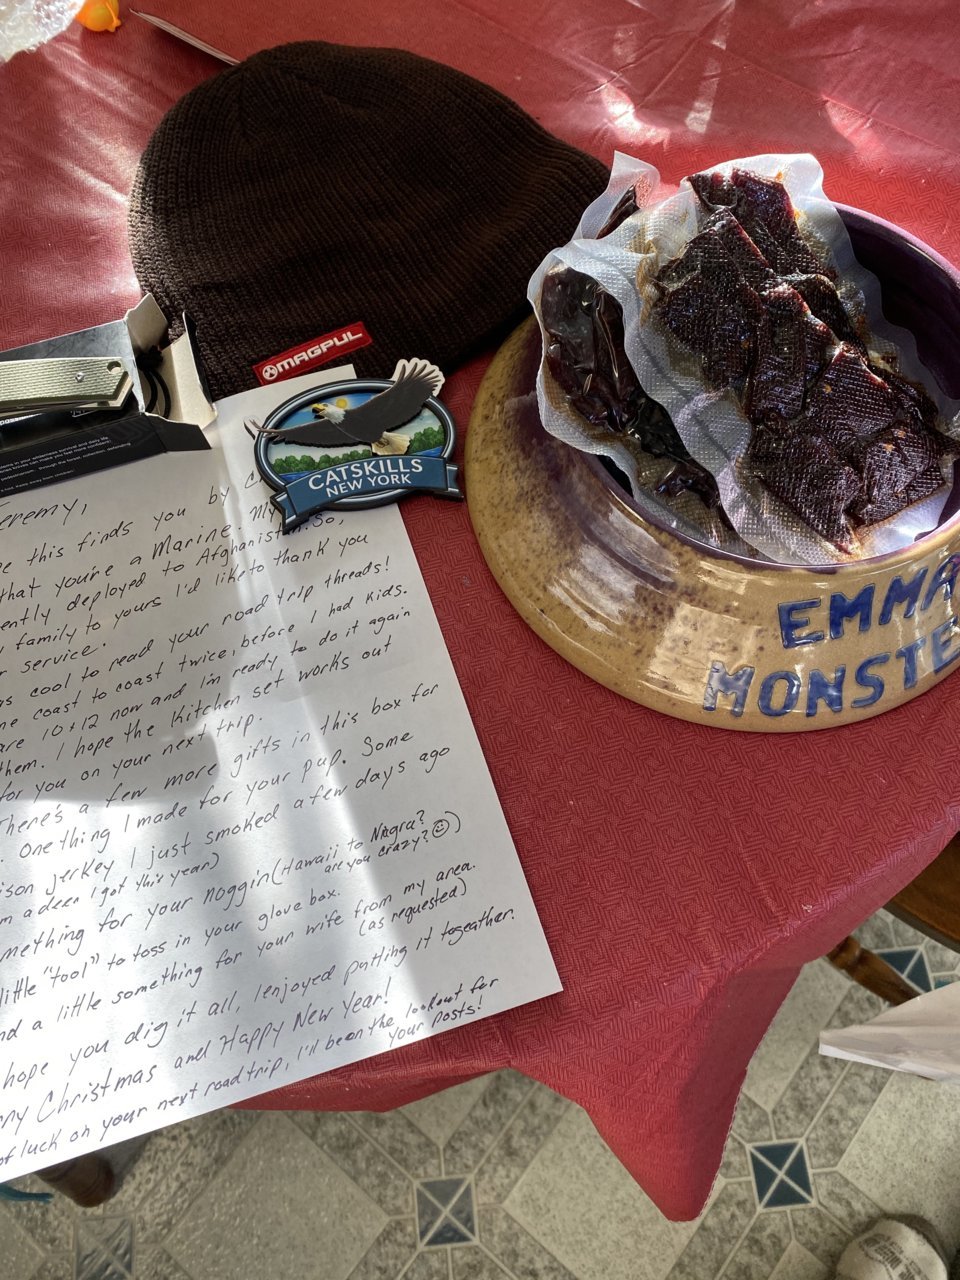 MAGPUL
CATSKILLS
NEW YORK
EMMA
MONSTE
Jeremy,
this finds you by
that you're a Marine. My
ently deployed to Afghanistan. So,
family to yours I'd like to thank you
service.
as cool to read your road trip threads!
ne coast to coast twice, before I had kids.
are 10+12 now and I'm ready to do it again
them. I hope the kitchen set works out
for you on your next trip.
There's a few more gifts in this box for
One thing I made for your pup. Some
ison jerkey I just smoked a few days ago
m a deer I got this year)
mething for your noggin (Hawaii to Niagra?
are you crazy? ☺)
little "tool" to toss in your glove box.
nd a little something for your wife from my area.
(as requested)
hope you dig it all, I enjoyed putting it togeather.
rry Christmas and Happy New Year!
of luck on your next road trip, I'll be on the lookout for
your posts!